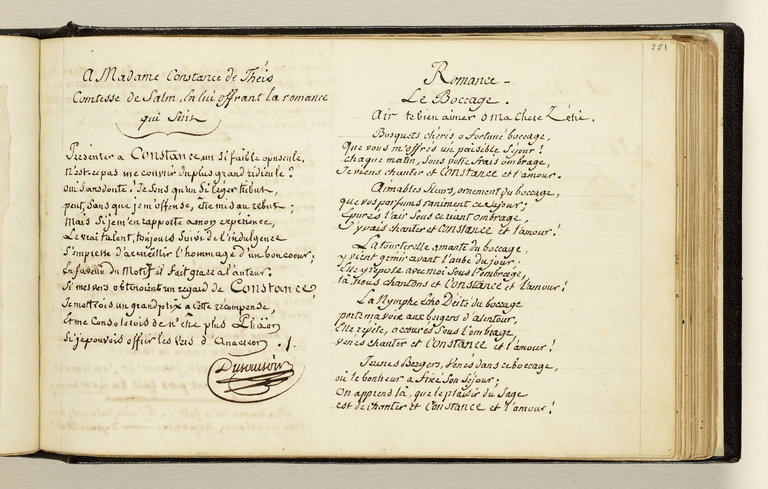 A Madame Constance de Theis
Comtesse de Salm, En lui offrant la romance
qui Suit
Présenter a Constance, un Si faible opuscule,
n'est ce pas me couvrir du plus grand ridicule?
oui Sans doute! Je Sens qu'un Si léger tribut,
peut, Sans que je m'offense, être mis au rebut;
Mais Si Je m'en rapporte a mon expérience,
Le vrai talent, toujours Suivi de l'indulgence
S'empresse d'accueillir l'hommage d'un bon coeur;
En faveur du Motif il fait grace a l'auteur.
Si mes vers obtenoient un regard de Constance,
Je mettrois un grand prix a cette récompense,
Et me Consolerois de n'être plus Phaon
Si je pouvois offrir les Vers d'Anacréon . /.
Dusausoir
251
Romance -
Le Boccage.
Air te bien aimer o ma chere Zélie.
Bosquets chéris, o fortuné boccage,
Que vous m'offrés un paisible Séjour!
chaque matin, Sous votre frais ombrage,
Je viens chanter et Constance et l'amour.
Aimables fleurs, ornement du boccage,
que vos parfums raniment ce Séjour;
Epurés l'air Sous ce riant ombrage,
J'y vais chanter et Constance et l'amour!
La tourterelle amante du boccage,
y vient gémir avant l'aube du jour.
Elle y repose avec moi Sous l'ombrage,
la, nous chantons et Constance et l'amour!
La Nymphe Echo Déité du boccage
porte ma voix aux bergers d'alentour,
Elle répète, accourés Sous l'ombrage
venés chanter et Constance et l'amour!
Jeunes Bergers, Venés dans ce boccage,
où le bonheur a fixé Son Séjour;
On apprend là, que le plaisir du Sage
est de chanter et Constance et l'amour!